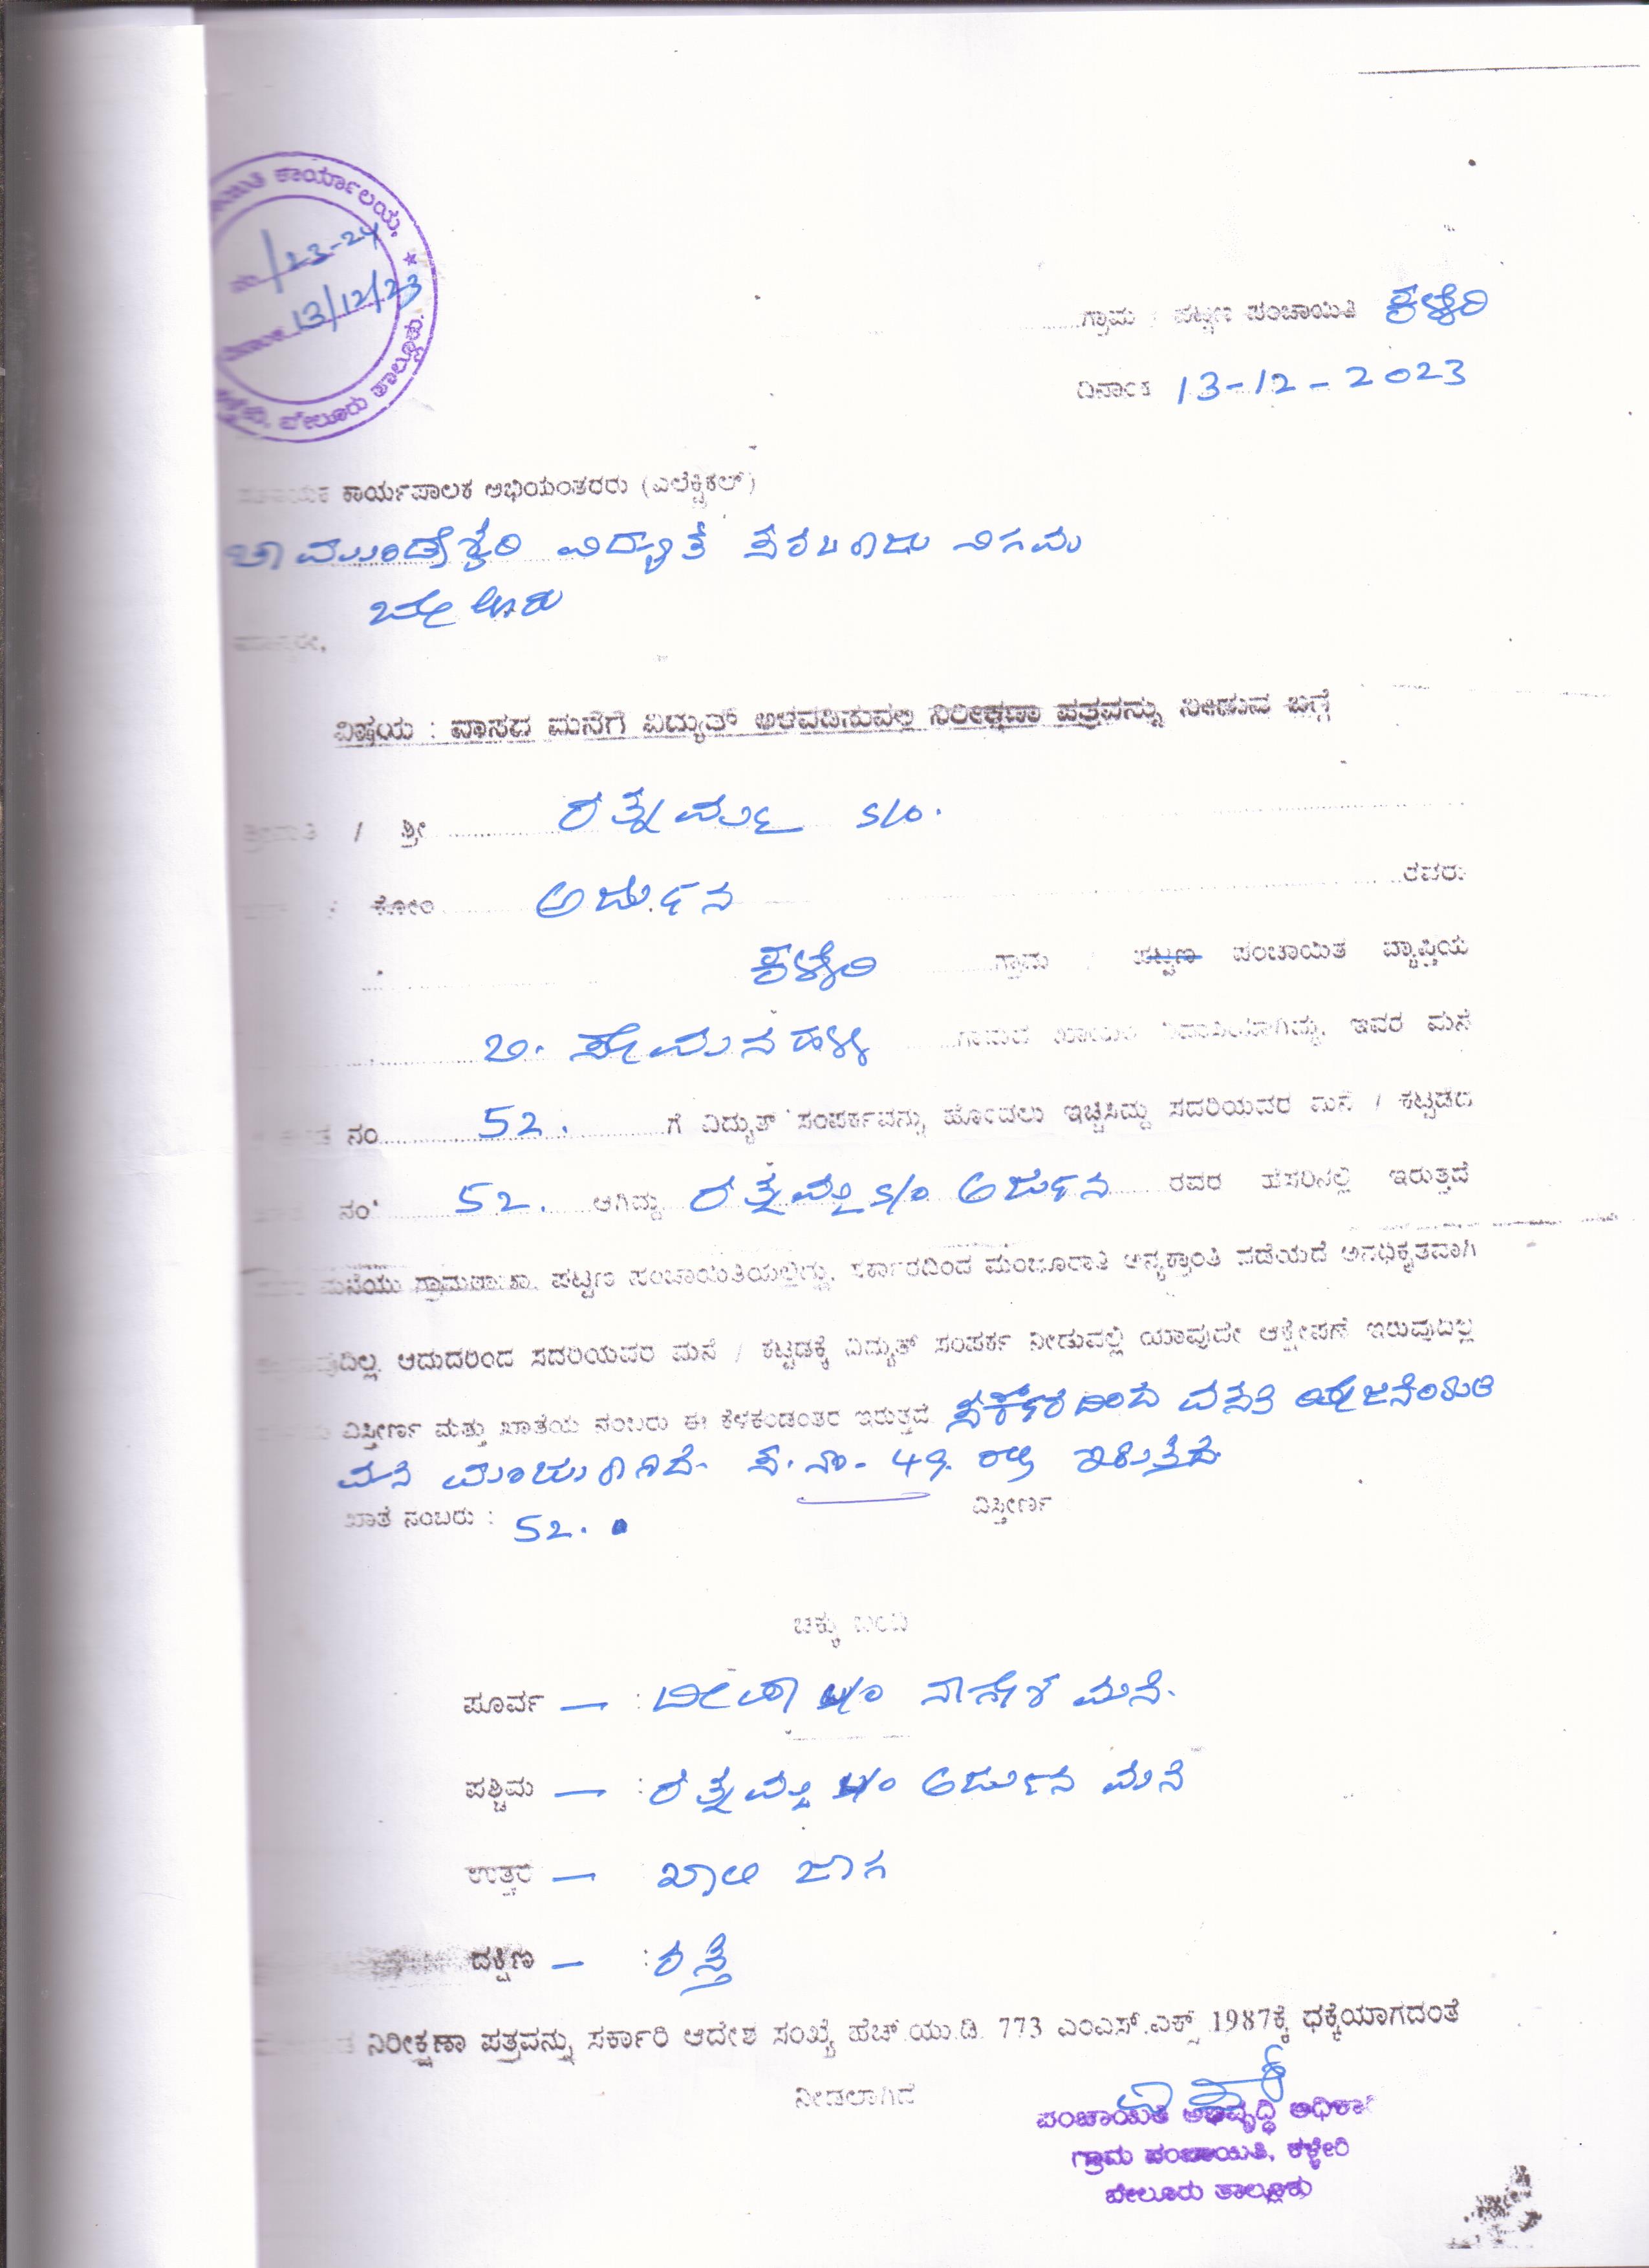 ಕಾರ್ಯಾಲಯ, ★
ನಂ /23-24
ದಿನಾಂಕ 13/12/23
ಬೇಲೂರು ತಾಲ್ಲೂಕು.
ಗ್ರಾಮ : ಪಟ್ಟಣ ಪಂಚಾಯಿತಿ ಕಳ್ಳೇರಿ
ದಿನಾಂಕ 13-12-2023
ಕಾರ್ಯಪಾಲಕ ಅಭಿಯಂತರರು (ಎಲೆಕ್ಟ್ರಿಕಲ್)
ಚಾಮುಂಡೇಶ್ವರಿ ವಿದ್ಯುತ್ ಸರಬರಾಜು ನಿಗಮ
ಬೇಲೂರು
ಮಾನ್ಯರೇ,
ವಿಷಯ : ವಾಸದ ಮನೆಗೆ ವಿದ್ಯುತ್ ಅಳವಡಿಸುವಲ್ಲಿ ನಿರೀಕ್ಷಣಾ ಪತ್ರವನ್ನು ನೀಡುವ ಬಗ್ಗೆ
ಶ್ರೀಮತಿ / ಶ್ರೀ ರತ್ನಮ್ಮ S/o.
ಕೋಂ ಅರ್ಜುನ ರವರು
ಕಳ್ಳೇರಿ ಗ್ರಾಮ / ಪಟ್ಟಣ ಪಂಚಾಯಿತ ವ್ಯಾಪ್ತಿಯ
ಬಿ. ಸೋಮನಹಳ್ಳಿ ಗ್ರಾಮದ ಇವರ ಮನೆ
ನಂ 52. ಗೆ ವಿದ್ಯುತ್ ಸಂಪರ್ಕವನ್ನು ಹೊಂದಲು ಇಚ್ಛಿಸಿದ್ದು ಸದರಿಯವರ ಮನೆ / ಕಟ್ಟಡದ
ನಂ 52. ಆಗಿದ್ದು ರತ್ನಮ್ಮ S/o ಅರ್ಜುನ ರವರ ಹೆಸರಿನಲ್ಲಿ ಇರುತ್ತದೆ
ಮನೆಯು ಗ್ರಾಮಠಾಣಾ, ಪಟ್ಟಣ ಪಂಚಾಯಿತಿಯಲ್ಲಿದ್ದು, ಸರ್ಕಾರದಿಂದ ಮಂಜೂರಾತಿ ಅನ್ಯಕ್ರಾಂತಿ ಪಡೆಯದೆ ಅನಧಿಕೃತವಾಗಿ
ಆದುದರಿಂದ ಸದರಿಯವರ ಮನೆ / ಕಟ್ಟಡಕ್ಕೆ ವಿದ್ಯುತ್ ಸಂಪರ್ಕ ನೀಡುವಲ್ಲಿ ಯಾವುದೇ ಆಕ್ಷೇಪಣೆ ಇರುವುದಿಲ್ಲ
ವಿಸ್ತೀರ್ಣ ಮತ್ತು ಖಾತೆಯ ನಂಬರು ಈ ಕೆಳಕಂಡಂತರ ಇರುತ್ತದೆ. ಸರ್ಕಾರದಿಂದ ವಸತಿ ಯೋಜನೆಯಡಿ
ಮನೆ ಮಂಜೂರಾಗಿದೆ. ಸ.ನಂ- 49 ರಲ್ಲಿ ಇರುತ್ತದೆ
ಖಾತೆ ನಂಬರು : 52. ವಿಸ್ತೀರ್ಣ
ಚಕ್ಕು ಬಂದಿ
ಪೂರ್ವ — : ದೀಪಾ W/o ನಾಗೇಶ ಮನೆ.
ಪಶ್ಚಿಮ — : ರತ್ನಮ್ಮ W/o ಅರ್ಜುನ ಮನೆ
ಉತ್ತರ — ಖಾಲಿ ಜಾಗ
ದಕ್ಷಿಣ — : ರಸ್ತೆ
ನಿರೀಕ್ಷಣಾ ಪತ್ರವನ್ನು ಸರ್ಕಾರಿ ಆದೇಶ ಸಂಖ್ಯೆ ಹೆಚ್.ಯು.ಡಿ. 773 ಎಂಎಸ್.ಎಕ್ಸ್ 1987ಕ್ಕೆ ಧಕ್ಕೆಯಾಗದಂತೆ
ನೀಡಲಾಗಿದೆ
ಪಂಚಾಯಿತಿ ಅಭಿವೃದ್ಧಿ ಅಧಿಕಾರಿ
ಗ್ರಾಮ ಪಂಚಾಯಿತಿ, ಕಳ್ಳೇರಿ
ಬೇಲೂರು ತಾಲ್ಲೂಕು